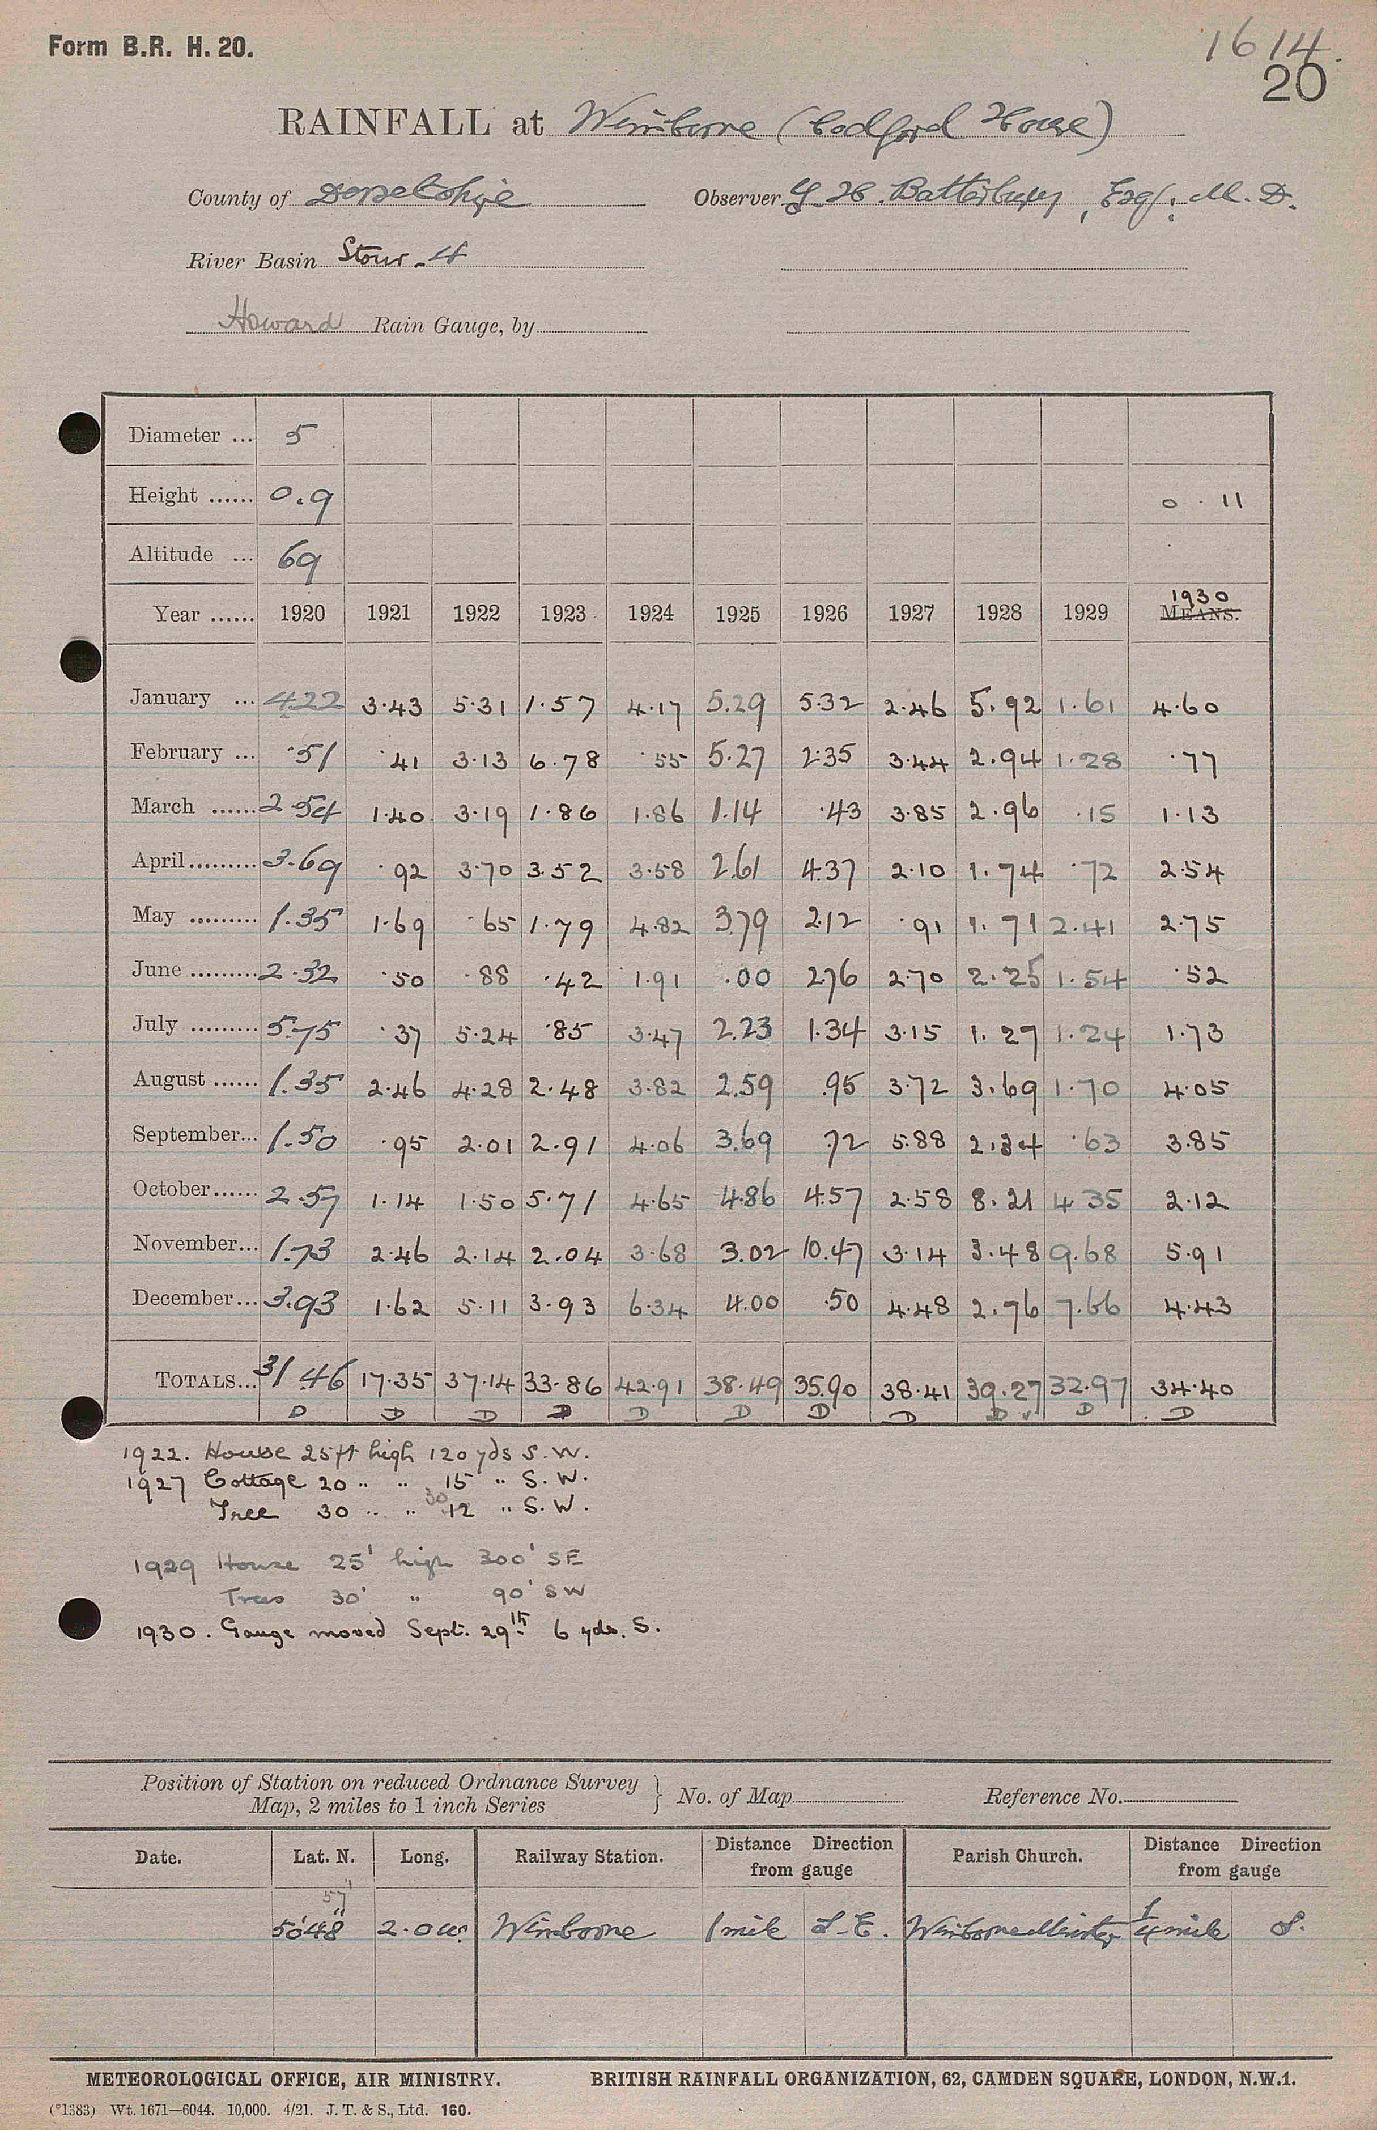 Form B.R. H. 20.
1614.
20
RAINFALL at Wimborne (Codford House)
County of Dorsetshire Observer G. H. Batterbury, Esq., M. D.
River Basin Stour - 4
Howard Rain Gauge, by
Diameter ... 5
Height ...... 0.9 0 . 11
Altitude ... 69
Year ...... 1920 1921 1922 1923 1924 1925 1926 1927 1928 1929 1930 MEANS.
January ... 4.22 3.43 5.31 1.57 4.17 5.29 5.32 2.46 5.92 1.61 4.60
February ... .51 .41 3.13 6.78 .55 5.27 2.35 3.44 2.94 1.28 .77
March ...... 2.54 1.40 3.19 1.86 1.86 1.14 .43 3.85 2.96 .15 1.13
April......... 3.69 .92 3.70 3.52 3.58 2.61 4.37 2.10 1.74 .72 2.54
May ......... 1.35 1.69 .65 1.79 4.82 3.79 2.12 .91 1.71 2.41 2.75
June ......... 2.32 .50 .88 .42 1.91 .00 2.76 2.70 2.25 1.54 .52
July ......... 5.75 .37 5.24 .85 3.47 2.23 1.34 3.15 1.27 1.24 1.73
August ...... 1.35 2.46 4.28 2.48 3.82 2.59 .95 3.72 3.69 1.70 4.05
September... 1.50 .95 2.01 2.91 4.06 3.69 .72 5.88 2.34 .63 3.85
October...... 2.57 1.14 1.50 5.71 4.65 4.86 4.57 2.58 8.21 4.35 2.12
November... 1.73 2.46 2.14 2.04 3.68 3.02 10.47 3.14 3.48 9.68 5.91
December... 3.93 1.62 5.11 3.93 6.34 4.00 .50 4.48 2.76 7.66 4.43
TOTALS... 31.46 17.35 37.14 33.86 42.91 38.49 35.90 38.41 39.27 32.97 34.40
D D D D D D D D D ✓ D D
1922. House 25 ft high 120 yds S. W.
1927 Cottage 20 " " 15 " S. W.
Tree 30 " " 30 12 " S. W.
1929 House 25' high 300' SE
Trees 30' " 90' SW
1930. Gauge moved Sept. 29th 6 yds. S.
Position of Station on reduced Ordnance Survey
Map, 2 miles to 1 inch Series } No. of Map Reference No.
Date. Lat. N. Long. Railway Station. Distance Direction from gauge Parish Church. Distance Direction from gauge
57'
50 48 2.0 w. Wimborne 1 mile S-E. Wimborne Minster ¼ mile S.
METEOROLOGICAL OFFICE, AIR MINISTRY. BRITISH RAINFALL ORGANIZATION, 62, CAMDEN SQUARE, LONDON, N.W.1.
(*1383) Wt. 1671—6044. 10,000. 4/21. J. T. & S., Ltd. 160.